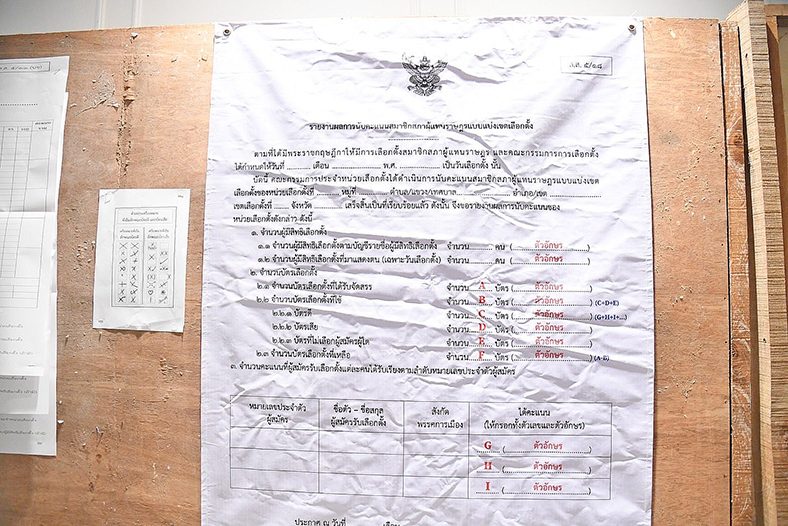 ส.ส. ๕/๑๘
รายงานผลการนับคะแนนสมาชิกสภาผู้แทนราษฎรแบบแบ่งเขตเลือกตั้ง
ตามที่ได้มีพระราชกฤษฎีกาให้มีการเลือกตั้งสมาชิกสภาผู้แทนราษฎร และคณะกรรมการการเลือกตั้ง
ได้กำหนดให้วันที่ ........... เดือน ................... พ.ศ. ........................ เป็นวันเลือกตั้ง นั้น
บัดนี้ คณะกรรมการประจำหน่วยเลือกตั้งได้ดำเนินการนับคะแนนสมาชิกสภาผู้แทนราษฎรแบบแบ่งเขต
เลือกตั้งของหน่วยเลือกตั้งที่ ............ หมู่ที่ ............ ตำบล/แขวง/เทศบาล ..................... อำเภอ/เขต .....................
เขตเลือกตั้งที่ ........ จังหวัด ............... เสร็จสิ้นเป็นที่เรียบร้อยแล้ว ดังนั้น จึงขอรายงานผลการนับคะแนนของ
หน่วยเลือกตั้งดังกล่าว ดังนี้
๑. จำนวนผู้มีสิทธิเลือกตั้ง
๑.๑ จำนวนผู้มีสิทธิเลือกตั้งตามบัญชีรายชื่อผู้มีสิทธิเลือกตั้ง จำนวน ........ คน (........ตัวอักษร........)
๑.๒ จำนวนผู้มีสิทธิเลือกตั้งที่มาแสดงตน (เฉพาะวันเลือกตั้ง) จำนวน ........ คน (........ตัวอักษร........)
๒. จำนวนบัตรเลือกตั้ง
๒.๑ จำนวนบัตรเลือกตั้งที่ได้รับจัดสรร จำนวน...A... บัตร (........ตัวอักษร........)
๒.๒ จำนวนบัตรเลือกตั้งที่ใช้ จำนวน...B... บัตร (........ตัวอักษร........) (C+D+E)
๒.๒.๑ บัตรดี จำนวน...C... บัตร (........ตัวอักษร........) (G+H+I+...)
๒.๒.๒ บัตรเสีย จำนวน...D... บัตร (........ตัวอักษร........)
๒.๒.๓ บัตรที่ไม่เลือกผู้สมัครผู้ใด จำนวน...E... บัตร (........ตัวอักษร........)
๒.๓ จำนวนบัตรเลือกตั้งที่เหลือ จำนวน...F... บัตร (........ตัวอักษร........) (A-B)
๓. จำนวนคะแนนที่ผู้สมัครรับเลือกตั้งแต่ละคนได้รับเรียงตามลำดับหมายเลขประจำตัวผู้สมัคร
หมายเลขประจำตัว ชื่อตัว - ชื่อสกุล สังกัด ได้คะแนน
ผู้สมัคร ผู้สมัครรับเลือกตั้ง พรรคการเมือง (ให้กรอกทั้งตัวเลขและตัวอักษร)
G (........ตัวอักษร........)
H (........ตัวอักษร........)
I (........ตัวอักษร........)
ประกาศ ณ วันที่ ............ เดือน